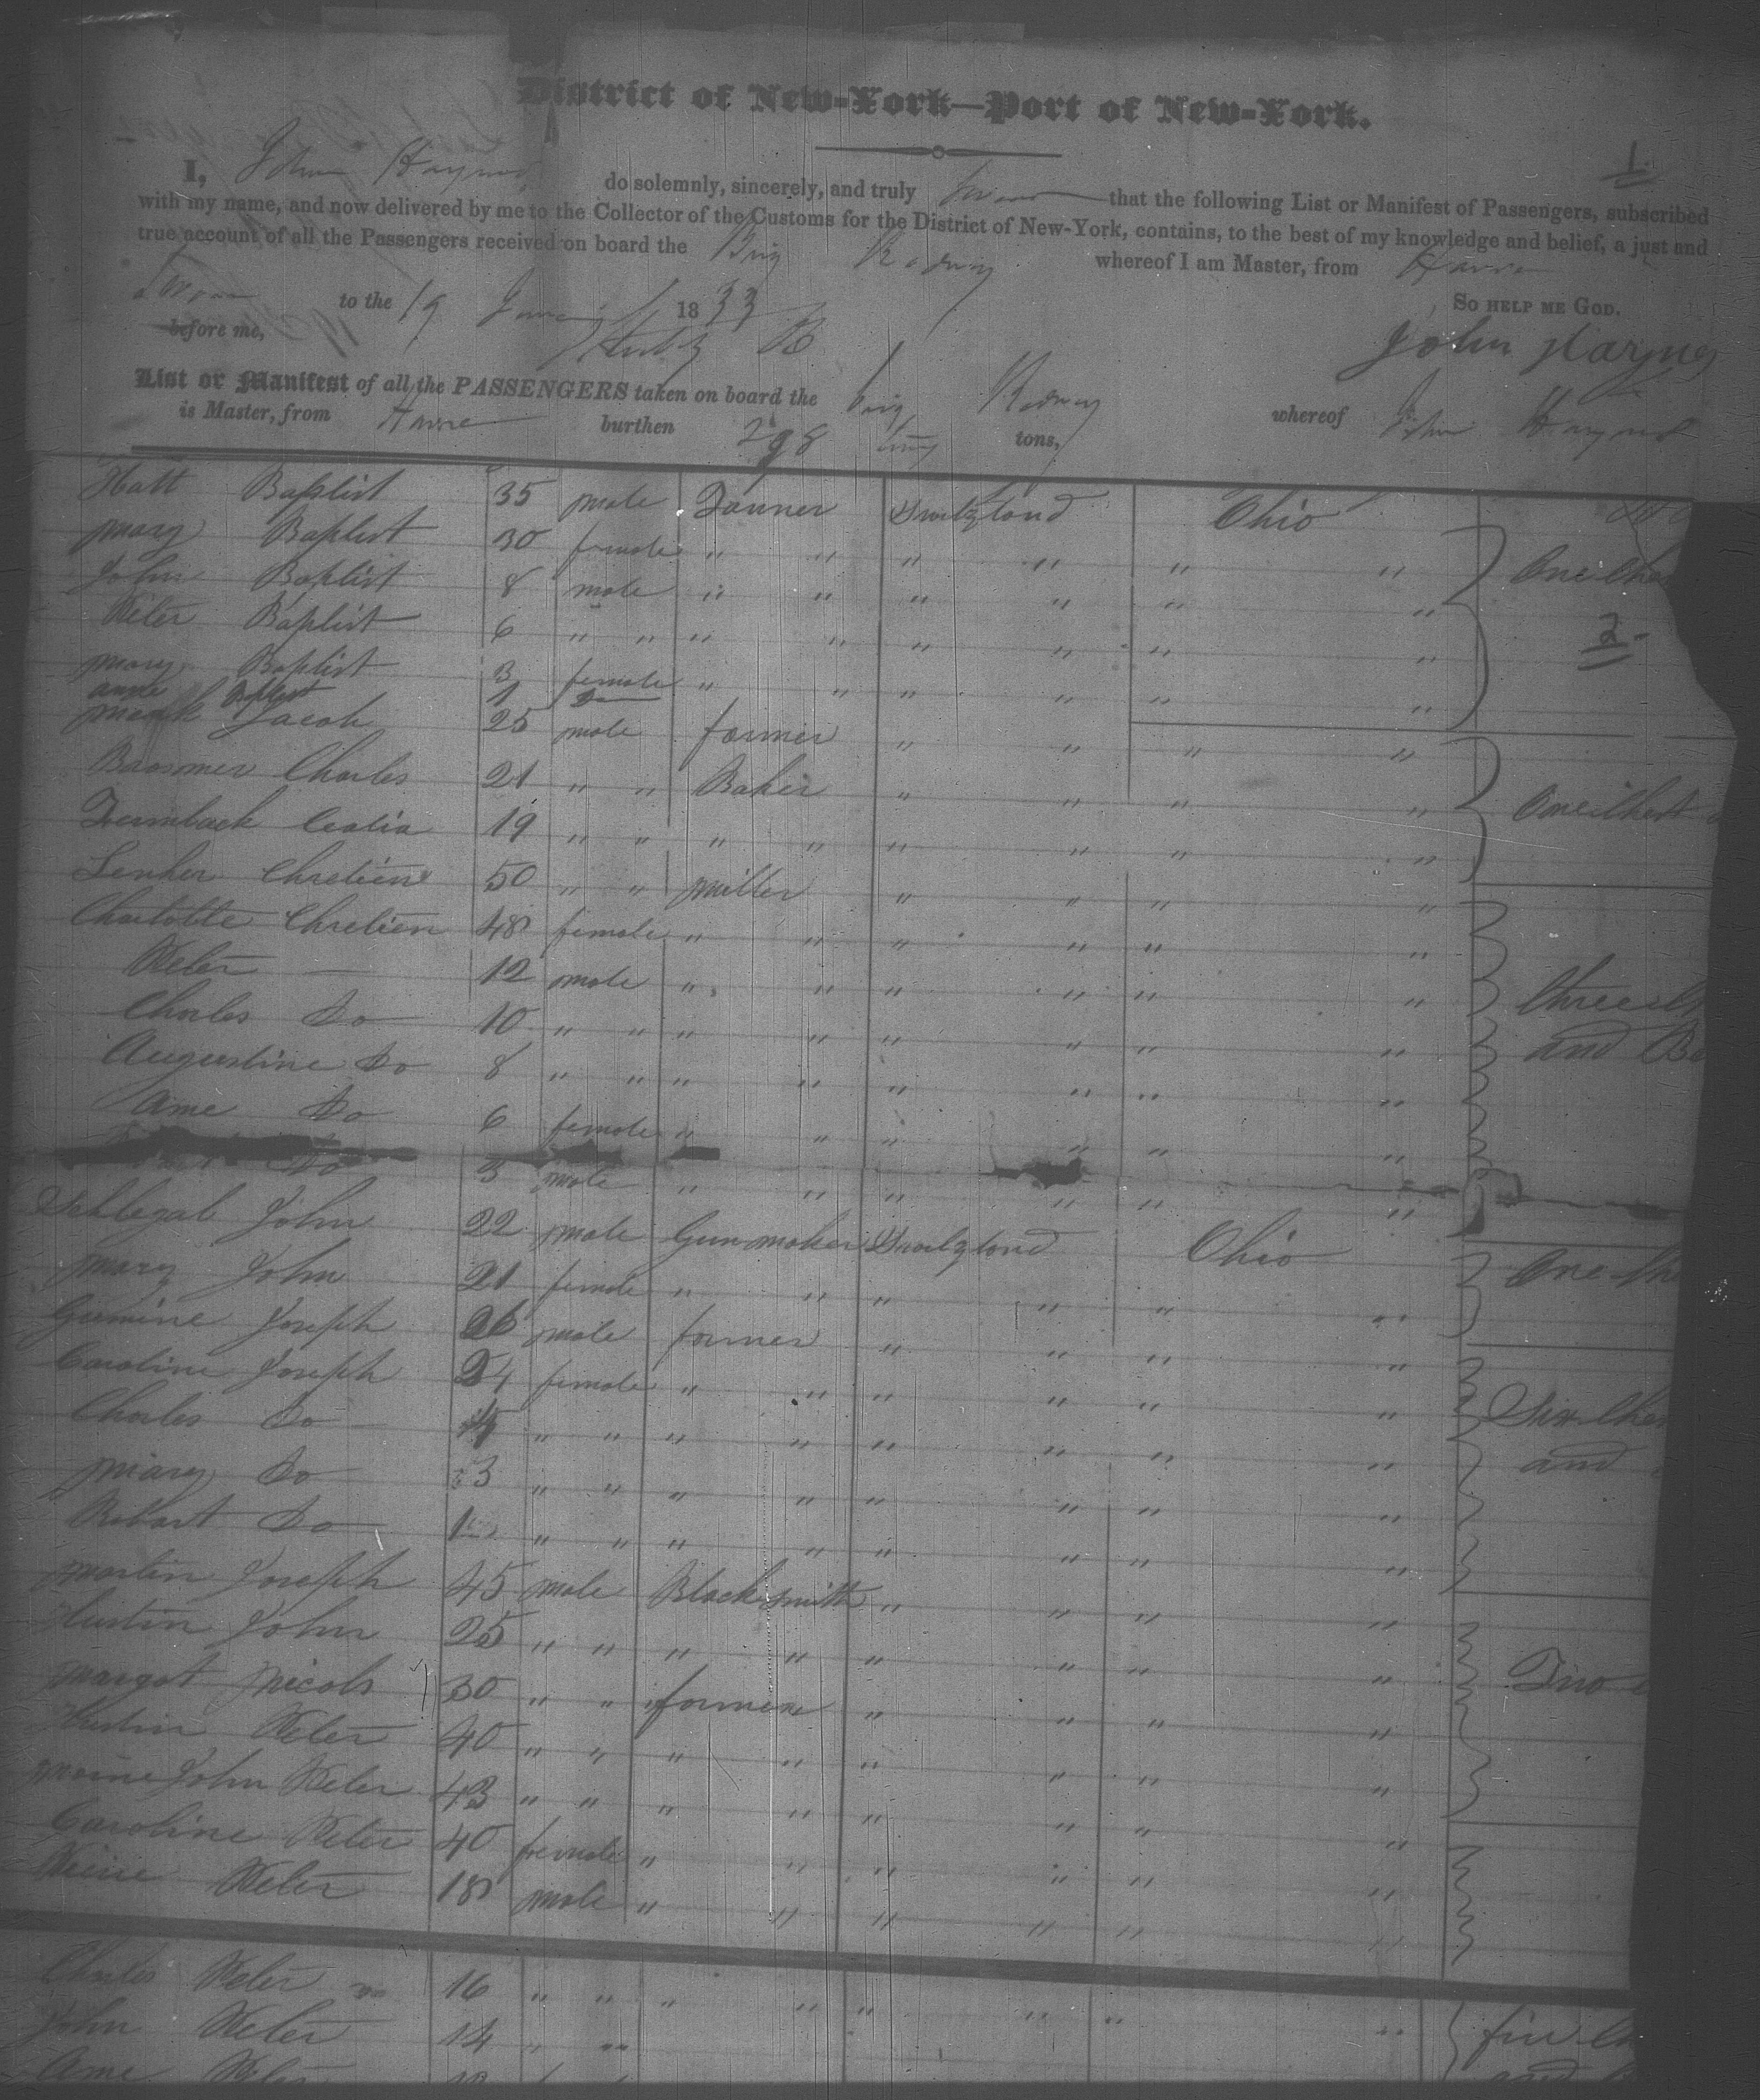 District of New-York—Port of New-York.
1
I, John Haynes do solemnly, sincerely, and truly swear that the following List or Manifest of Passengers, subscribed
with my name, and now delivered by me to the Collector of the Customs for the District of New-York, contains, to the best of my knowledge and belief, a just and
true account of all the Passengers received on board the Brig Rodney whereof I am Master, from Havre
Sworn to the 19 June 1833 So help me God.
before me, John Haynes
List or Manifest of all the PASSENGERS taken on board the brig Rodney whereof John Haynes
is Master, from Havre burthen 298 tons,
Hatt Baptist 35 male Tanner Switzland Ohio
mary Baptist 30 female " " " " " "
John Baptist 8 male " " " " " " One
Peter Baptist 6 " " " " " " " " 2
mary Baptist 3 female " " " " " "
anne Baptist 1 Do
Jacob 25 male farmer " " " "
Charles 21 " " Baker " " " "
19 " " " " " " " "
Chretien 50 " " miller " " " "
Charlotte Chretien 48 female " " " " " "
Peter — 12 male " " " " " " three
Charles Do 10 " " " " " " " " and
Augustine Do 8 " " " " " " " "
Ame Do 6 female " " " " " "
Do 3 male " " " " " "
Schlegal John 22 male Gunmaker Switzland Ohio
mary John 21 female " " " " " " One
Joseph 26 male farmer " " " "
Caroline Joseph 24 female " " " " " "
Charles Do 4 " " " " " " " " Six
mary Do 3 " " " " " " " " and
Robart Do 1 " " " " " " " "
martin Joseph 45 male Blacksmith " " " "
Hustin John 25 " " " " " " " "
margot Nicols 30 " " farmer " " " " Two
Hustin Peter 40 " " " " " " " "
John Peter 43 " " " " " " " "
Caroline Peter 40 female " " " " " "
Peter 18 male " " " " " "
Charles Peter 16 " " " " " " " "
John Peter 14 " "
Ame Peter